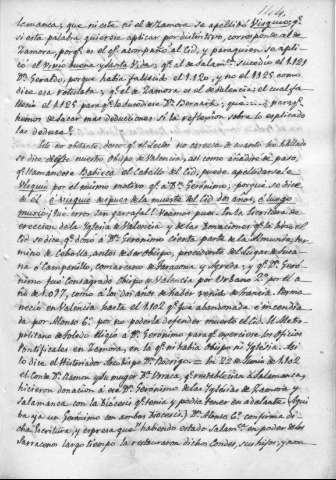 144,
lamanca, que ni este ni el de Zamora se apellidó Visquio; q.e
si esta palabra quisiese aplicar por distintivo, corresponde al de
Zamora, por q.e es el q.e acompañó al Cid, y para quien se apli
có el Visio buena y Santa Vida, q.e al de Salam.ca sucedió el 1121
D.n Geraldo, porque habia fallecido el 1120, y no el 1125 como
dice esa rotulata, y q.e al de Zamora es el de Valencia; el cual fa
lleció el 1125 para q.e le sucediese D.n Bernardo, que para q.e
hemos de sacar mas deducciones si la reflexion sobre lo explicado
las deduce?
no obstante, deseo q.e el Lector no carezca de cuanto he hablado
se dice sobre nuestro Obispo de Valencia, asi como añadiré de paso,
q.e llamandose Babieca el Caballo del Cid, puede apellidarse le
Visquio por el mismo motivo q.e a D.n Geronimo, porque se dice
de él é visque despues de la muerte del Cid dos anos, é luego
murió; fue error sin garrafal! Veamos pues. En la Escritura de
ereccion de la Iglesia de Valencia y de las donaciones q.e la hizo el
Cid se dice, q.e donó a D.n Geronimo cierta parte de la Almunia, ter
mino de Cebolla, antes de ser Obispo, procedente del Lugar de
ó Campenillo, comarcano de Tarazona y Agreda, y q.e D.n Geró
nimo fue consagrado Obispo de Valencia por Urbano 2.o por el a
ño de 1097, como a los dos años de haber venido de Francia. Perma
neció en Valencia hasta el 1102 q.e fue abandonada é incendia
da por Alonso 6.o por no poderla defender muerto el Cid. El Metro
politano de Toledo eligió a D.n Geronimo para q.e exerciera los oficios
Pontificales en Zamora, en la q.e no habia Obispo ni Iglesia. Asi
dice el Historiador Arzobispo D.n Rodrigo. en 22 de Junio de 1102
el Conde D.n Ramon y su muger D.a Urraca, q.e restablecian á Salamanca,
hicieron donacion a ese D.n Geronimo de las Iglesias de Zamora y
Salamanca con la Diocesis q.e tenia y podia tener en adelante (Aqui
ba ya un Geronimo en ambos Diocesis). D.n Alonso 6.o confirma di
cha Escritura, y expresa que habiendo estado Salam.ca en poder de los
Sarracenos largo tiempo la restauraron dichos Condes, sus hijos; y aun